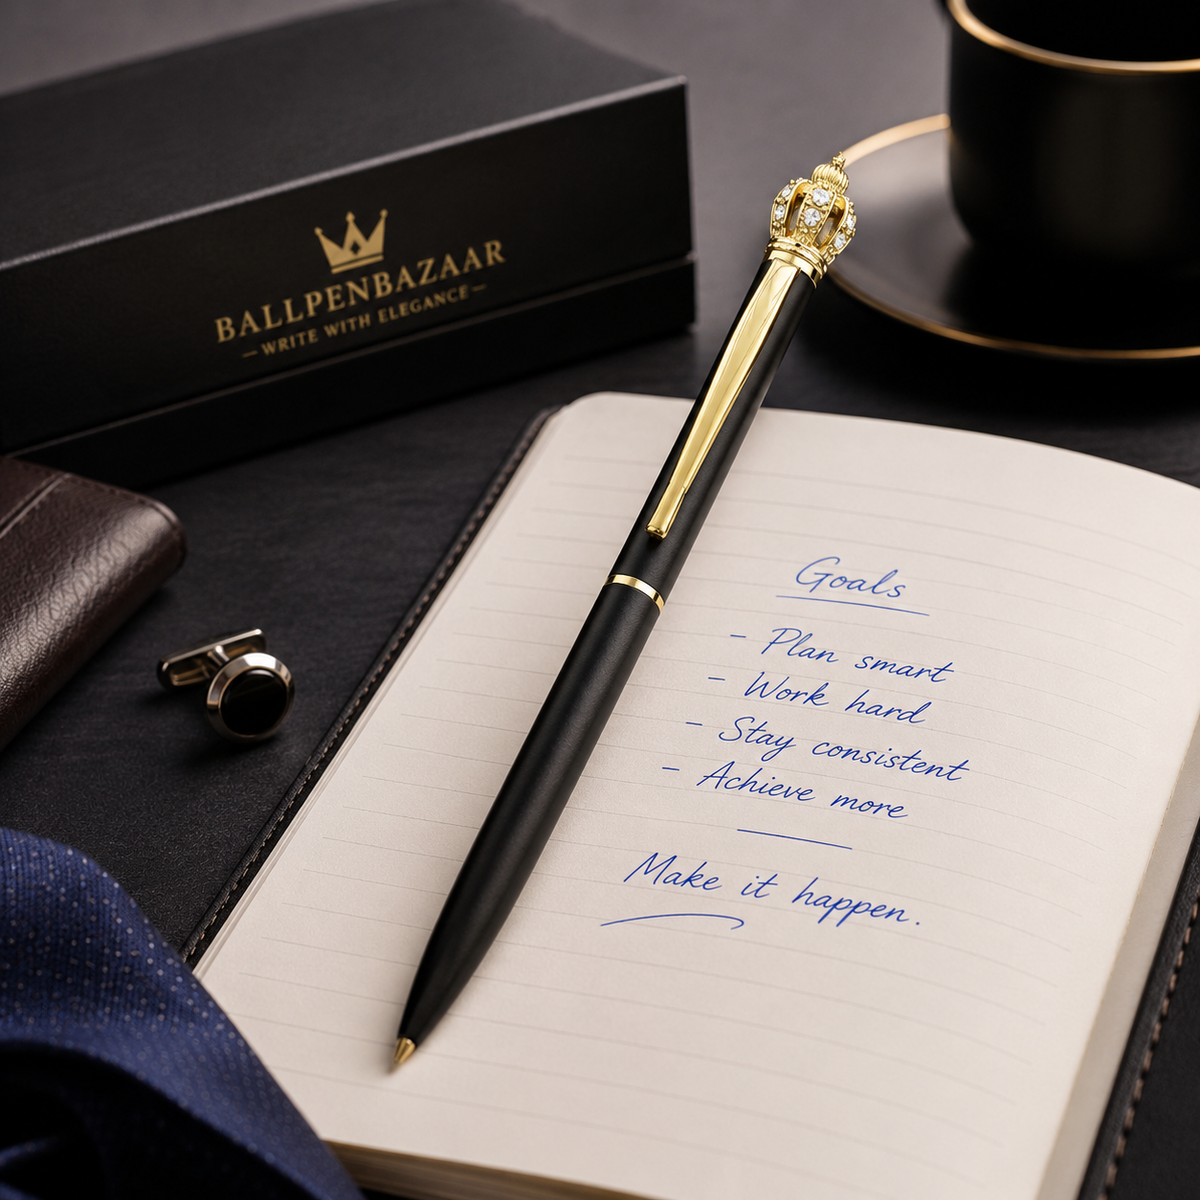 BALLPENBAZAAR
— WRITE WITH ELEGANCE —
Goals
- Plan smart
- Work hard
- Stay consistent
- Achieve more
Make it happen.